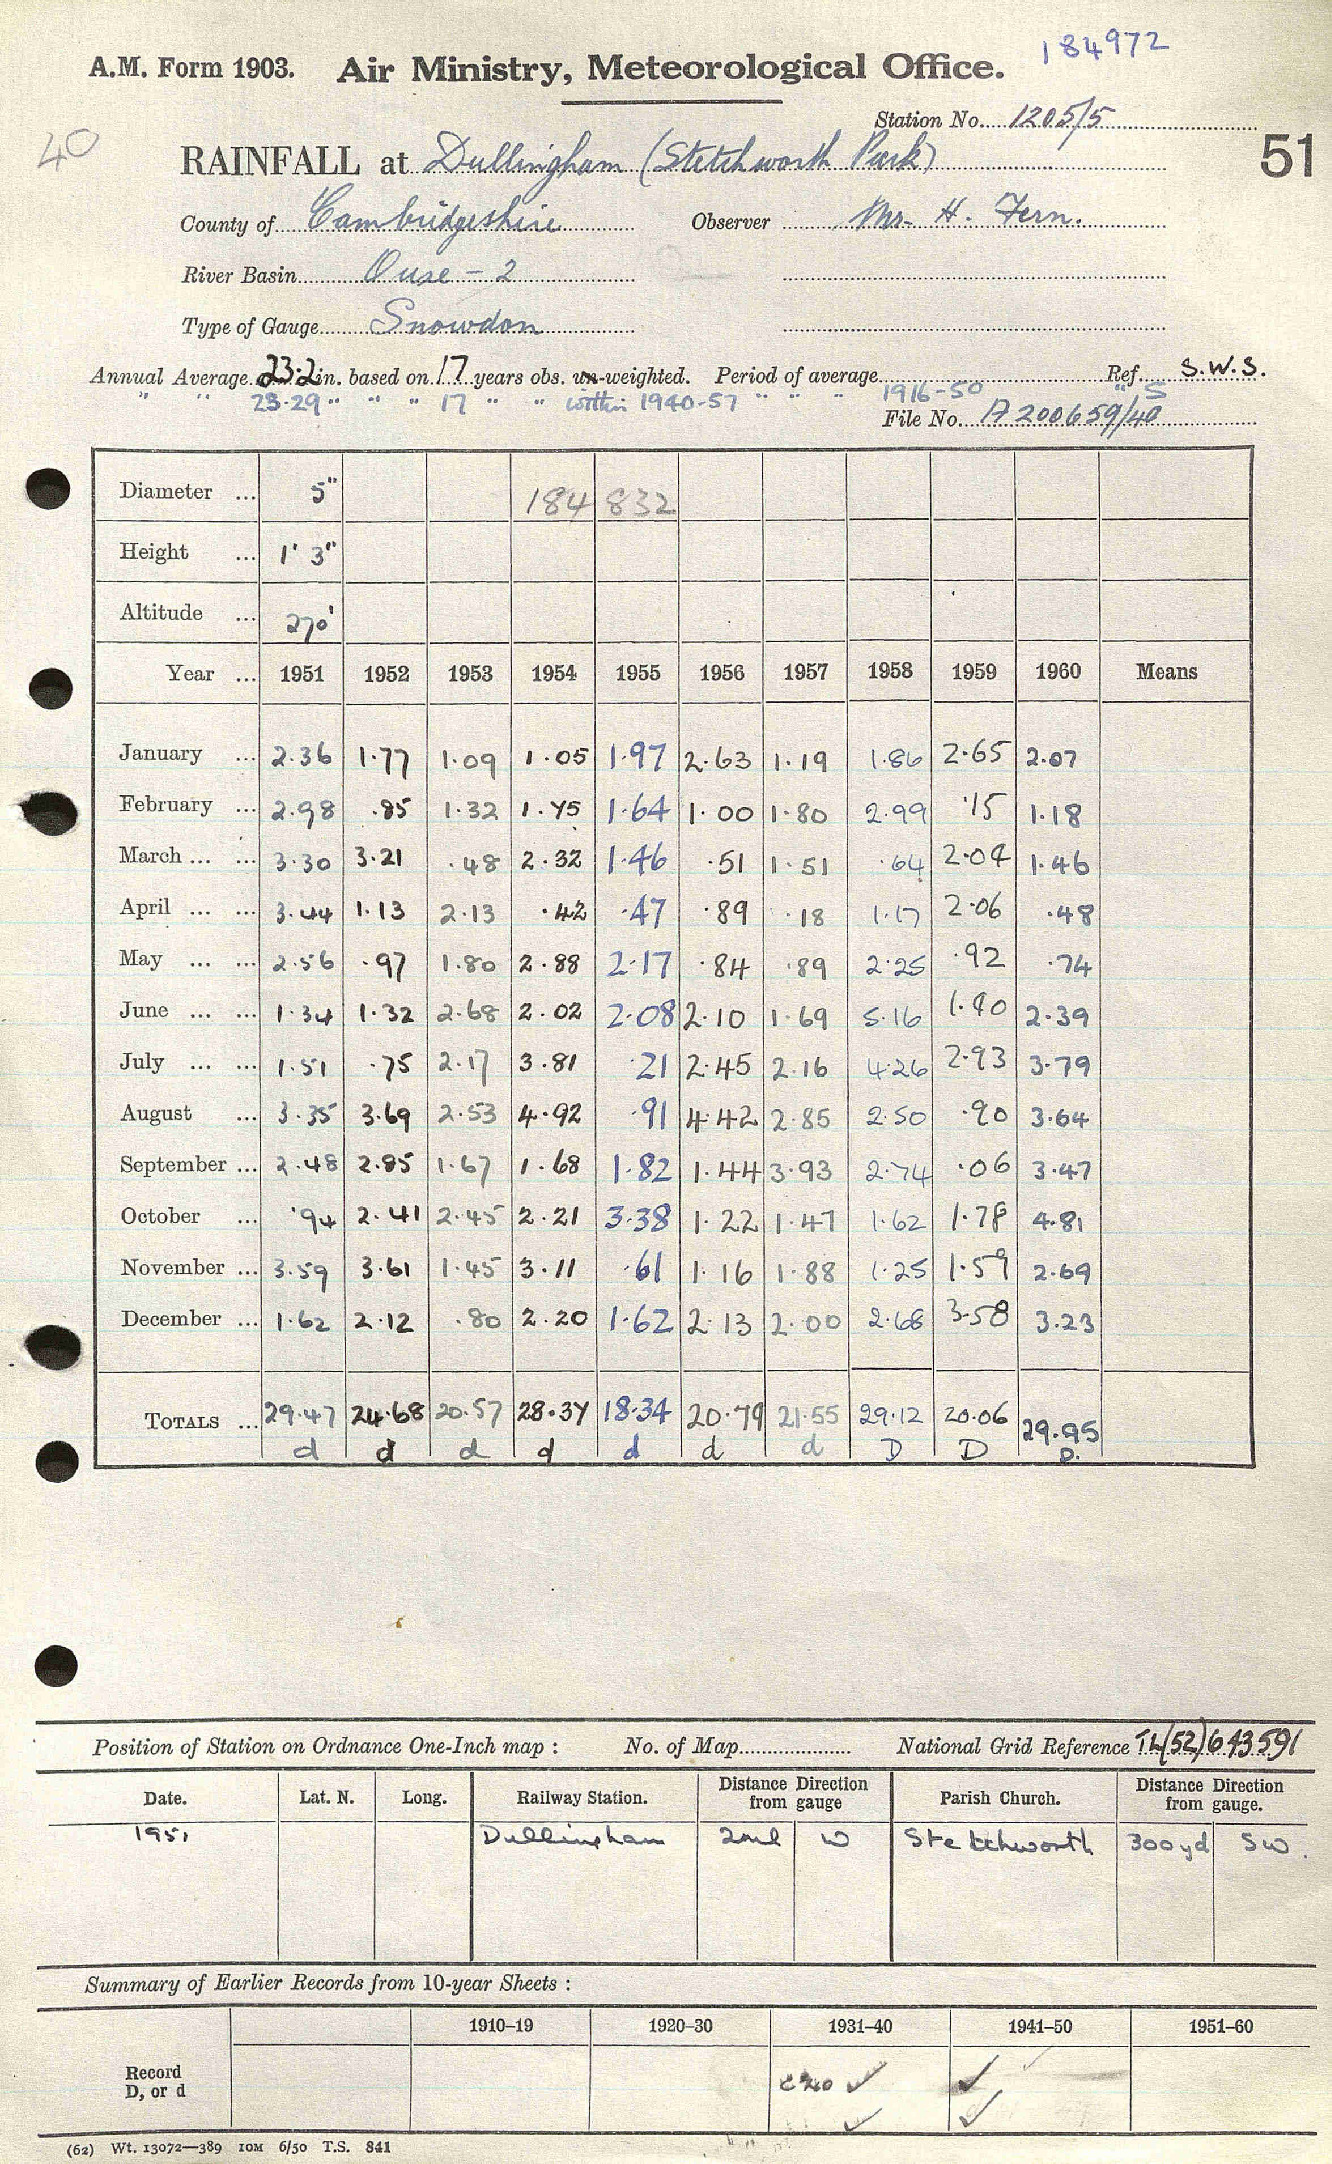 184972
A.M. Form 1903. Air Ministry, Meteorological Office.
Station No. 1205/5
40
51
RAINFALL at Dullingham (Stetchworth Park)
County of Cambridgeshire Observer Mr. H. Fern.
River Basin Ouse - 2
Type of Gauge Snowdon
Annual Average 23.2 in. based on 17 years obs. un-weighted. Period of average Ref. S.W.S.
" " 23.29 " " " 17 " " within 1940-57 " " " 1916-50 " S
File No. A200659/40
Diameter ... 5" 184 832
Height ... 1' 3"
Altitude ... 270'
Year ... 1951 1952 1953 1954 1955 1956 1957 1958 1959 1960 Means
January ... 2.36 1.77 1.09 1.05 1.97 2.63 1.19 1.86 2.65 2.07
February ... 2.98 .85 1.32 1.75 1.64 1.00 1.80 2.99 .15 1.18
March ... ... 3.30 3.21 .48 2.32 1.46 .51 1.51 .64 2.04 1.46
April ... ... 3.44 1.13 2.13 .42 .47 .89 .18 1.17 2.06 .48
May ... ... 2.56 .97 1.80 2.88 2.17 .84 .89 2.25 .92 .74
June ... ... 1.34 1.32 2.68 2.02 2.08 2.10 1.69 5.16 1.40 2.39
July ... ... 1.51 .75 2.17 3.81 .21 2.45 2.16 4.26 2.93 3.79
August ... 3.35 3.69 2.53 4.92 .91 4.42 2.85 2.50 .90 3.64
September ... 2.48 2.85 1.67 1.68 1.82 1.44 3.93 2.74 .06 3.47
October ... .94 2.41 2.45 2.21 3.38 1.22 1.47 1.62 1.78 4.81
November ... 3.59 3.61 1.45 3.11 .61 1.16 1.88 1.25 1.59 2.69
December ... 1.62 2.12 .80 2.20 1.62 2.13 2.00 2.68 3.58 3.23
TOTALS ... 29.47 24.68 20.57 28.37 18.34 20.79 21.55 29.12 20.06 29.95
d d d d d d d D D D.
Position of Station on Ordnance One-Inch map : No. of Map National Grid Reference TL(52)643591
Date. Lat. N. Long. Railway Station. Distance Direction from gauge Parish Church. Distance Direction from gauge.
1951 Dullingham 2ml W Stetchworth 300yd SW.
Summary of Earlier Records from 10-year Sheets :
1910–19 1920–30 1931–40 1941–50 1951–60
Record D, or d ✓ ✓
✓ ✓
(62) Wt. 13072—389 10M 6/50 T.S. 841